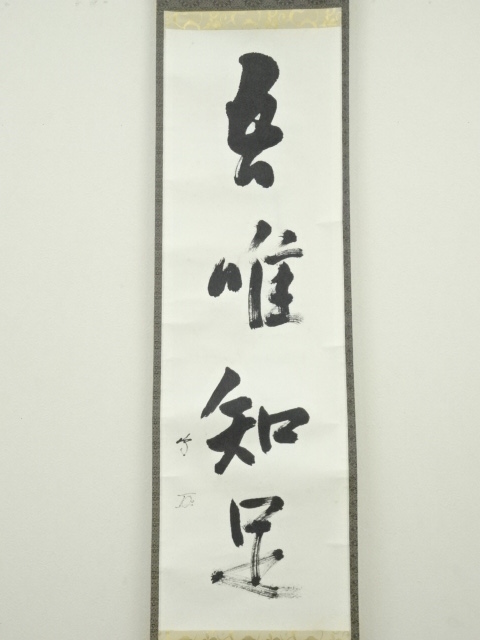 吾唯知足